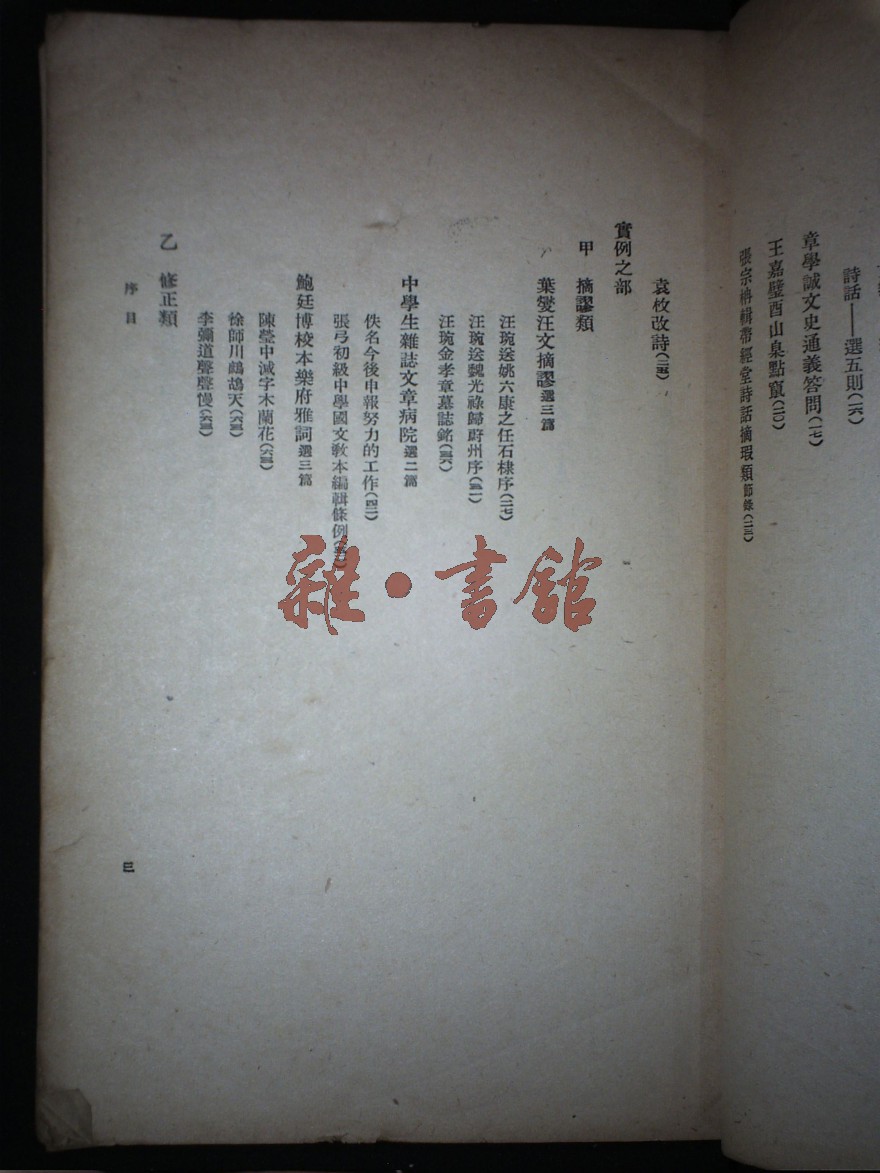 詩話——選五則(一六)
章學誠文史通義答問(一七)
王嘉璧酉山臬點竄(二〇)
張宗柟輯帶經堂詩話摘瑕類節錄(二三)
袁枚改詩(二五)
實例之部
甲 摘謬類
葉燮汪文摘謬選三篇
汪琬送姚六康之任石棣序(二七)
汪琬送魏光祿歸蔚州序(三一)
汪琬金孝章墓誌銘(三六)
中學生雜誌文章病院選二篇
佚名今後申報努力的工作(四二)
張弓初級中學國文敎本編輯條例
鮑廷博校本樂府雅詞選三篇
陳瑩中減字木蘭花(六四)
徐師川鷓鴣天(六四)
李彌道聲聲慢(六四)
乙 修正類
序目
三
雜·書館